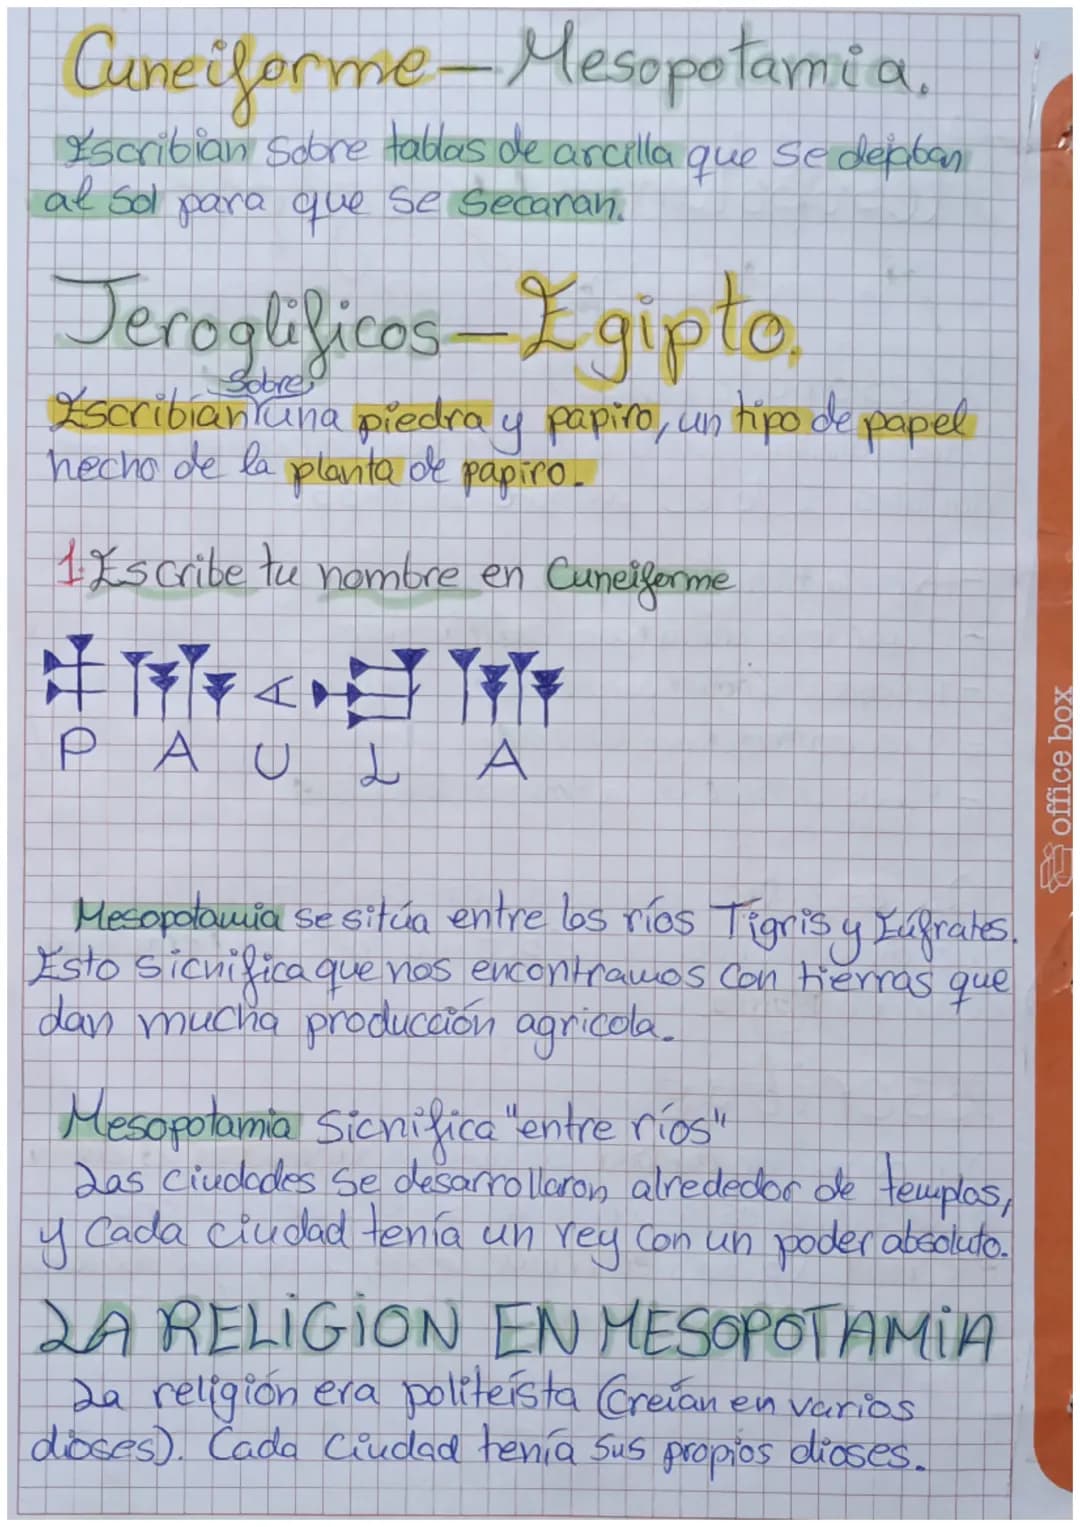 Cuneiforme – Mesopotamia.
Escribían sobre tablas de arcilla que se dejaban
al sol para que se secaran.
Jeroglificos – Egipto.
sobre
Escribían una piedra y papiro, un tipo de papel
hecho de la planta de papiro.
1. Escribe tu nombre en Cuneiforme
P A U L A
Mesopotamia se sitúa entre los ríos Tigris y Eúfrates.
Esto sicnifica que nos encontramos con tierras que
dan mucha producción agricola.
Mesopotamia sicnifica "entre ríos"
Las ciudades se desarrollaron alrededor de templos,
y cada ciudad tenía un rey con un poder absoluto.
LA RELIGIÓN EN MESOPOTAMIA
La religión era politeísta (Creían en varios
dioses). Cada ciudad tenía sus propios dioses.
office box